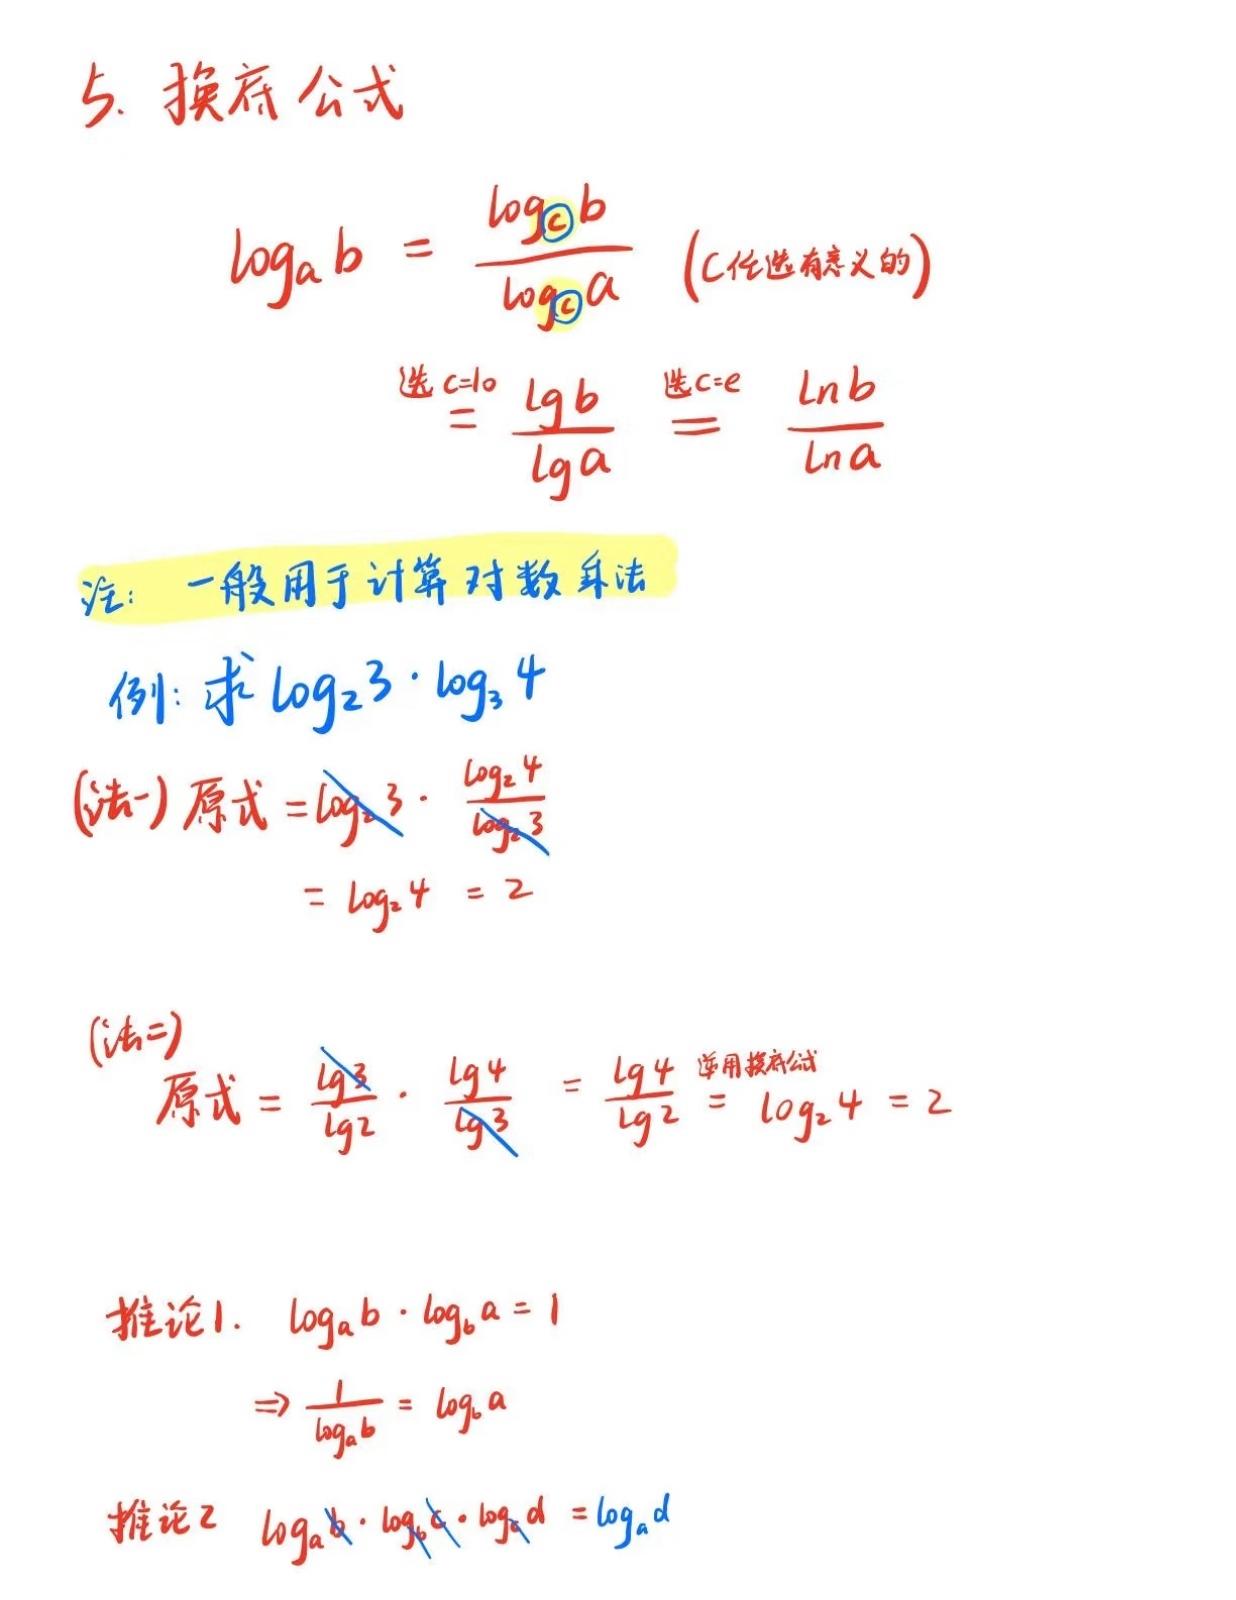 5. 换底公式
log_a b = \frac{log_c b}{log_c a} (C任选有意义的)
选 c=10 = \frac{lg b}{lg a} 选 c=e = \frac{ln b}{ln a}
注: 一般用于计算对数乘法
例: 求 log_2 3 · log_3 4
(法一) 原式 = log_2 3 · \frac{log_2 4}{log_2 3}
= log_2 4 = 2
(法二)
原式 = \frac{lg 3}{lg 2} · \frac{lg 4}{lg 3} = \frac{lg 4}{lg 2} 逆用换底公式 = log_2 4 = 2
推论1. log_a b · log_b a = 1
⇒ \frac{1}{log_a b} = log_b a
推论2 log_a b · log_b c · log_c d = log_a d